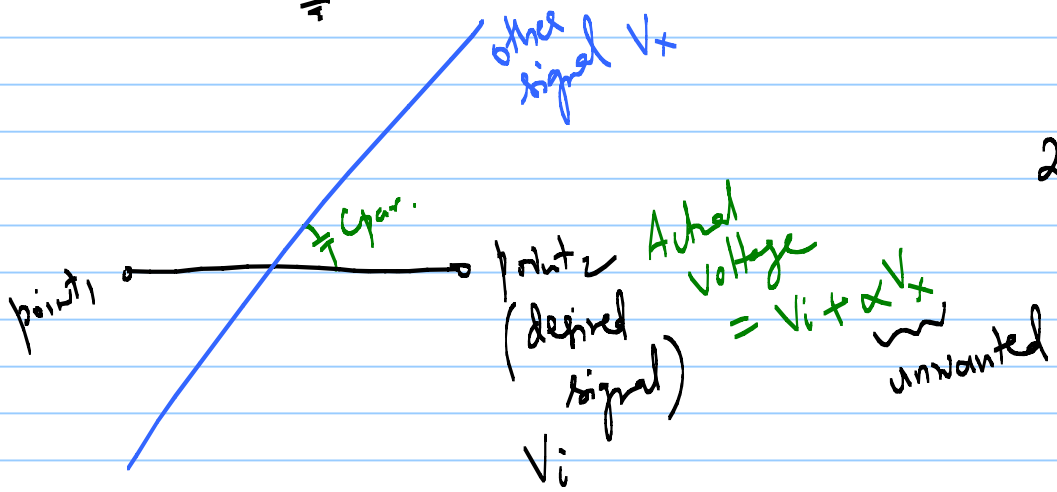 other Vx
signal
2
Cpar.
point1
point2
(desired
signal)
Vi
Actual
voltage
= Vi + αVx
unwanted